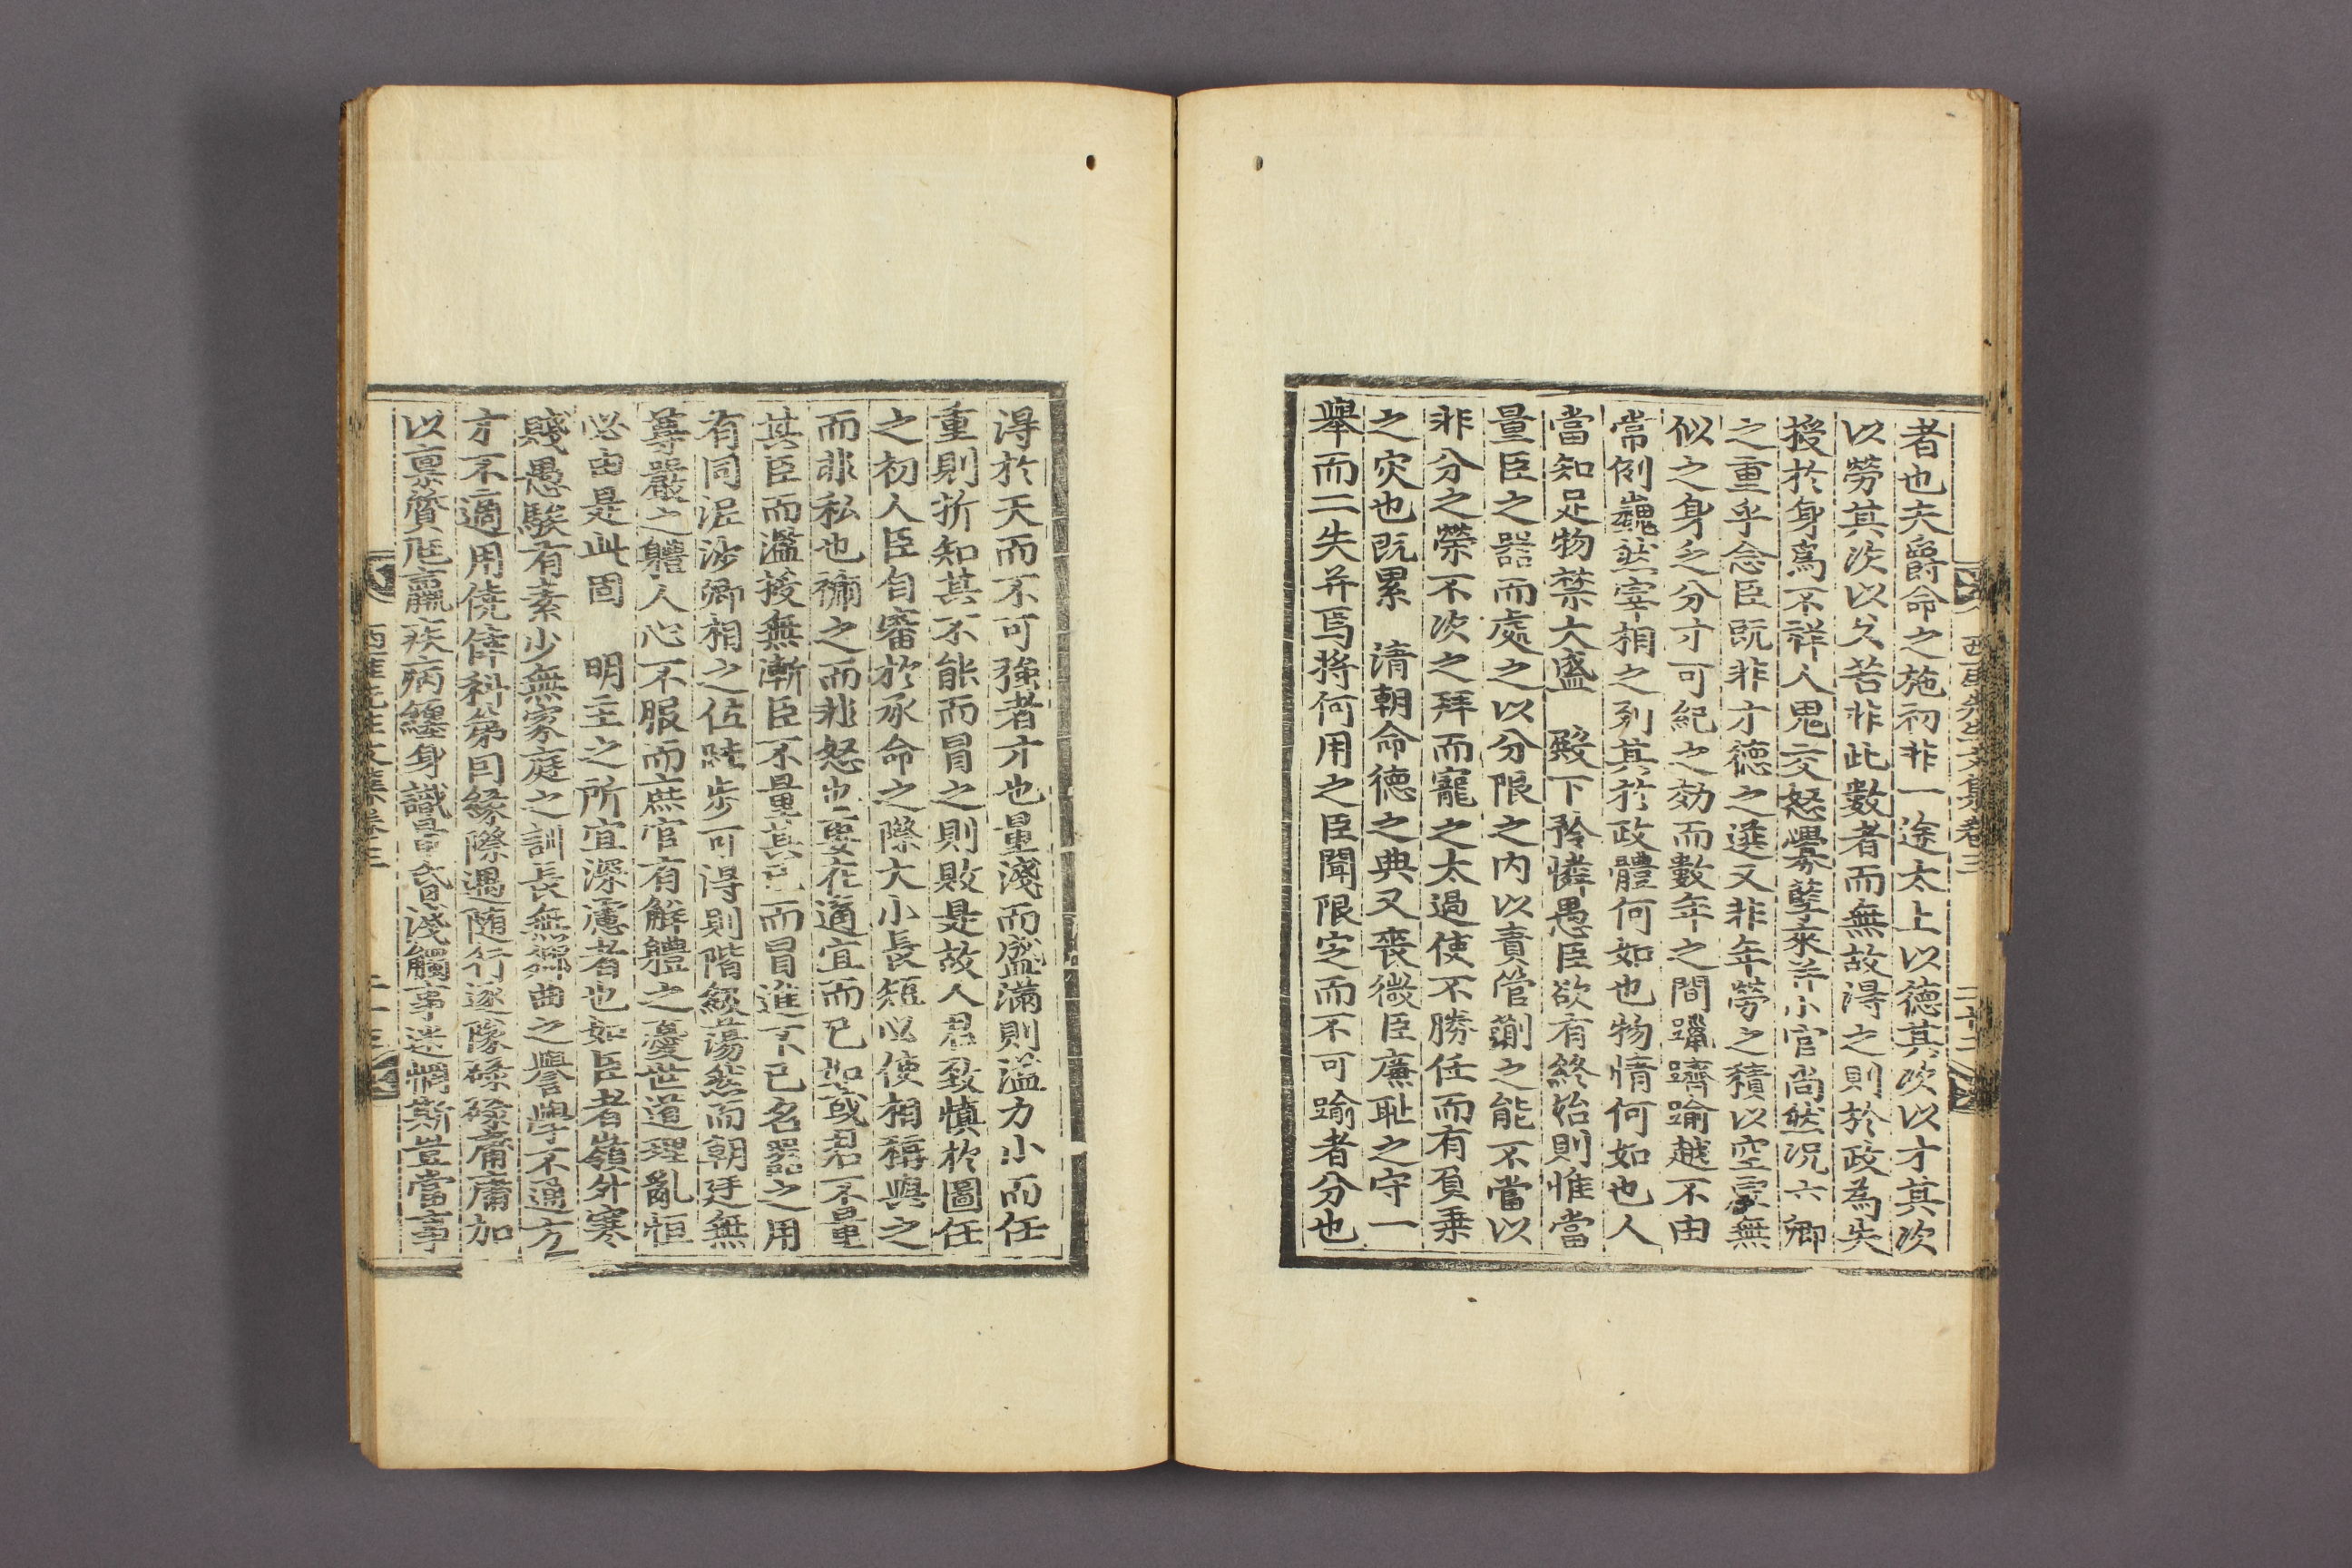 西厓先生文集卷三 二十二
者也夫爵命之施初非一途太上以德其次以才其次
以勞其次以久苦非此數者而無故得之則於政為失
授於身爲不祥人鬼交怒釁孽來并小官尚然况六卿
之重乎念臣旣非才德之選又非年勞之積以空空無
似之身乏分寸可紀之効而數年之間躐躋踰越不由
常例巍然宰相之列其於政體何如也物情何如也人
當知足物禁大盛 殿下矜憐愚臣欲有終始則惟當
量臣之器而處之以分限之內以責管蒯之能不當以
非分之榮不次之拜而寵之太過使不勝任而有負乗
之灾也旣累 清朝命德之典又喪微臣廉耻之守一
舉而二失并焉將何用之臣聞限定而不可踰者分也
得於天而不可強者才也量淺而盛滿則溢力小而任
重則折知其不能而冒之則敗是故人君致慎於圖任
之初人臣自審於承命之際大小長短必使相稱與之
而非私也禰之而非怒也要在適宜而已如或君不量
其臣而濫授無漸臣不量其己而冒進不已名器之用
有同泥沙卿相之位跬步可得則階級蕩然而朝廷無
尊嚴之軆人心不服而庶官有解軆之憂世道理亂恒
必由是此固 明主之所宜深慮者也如臣者嶺外寒
賤愚騃有素少無家庭之訓長無鄉曲之譽學不通方
才不適用僥倖科第因緣際遇随行逐隊碌碌庸庸加
以禀質尫羸疾病纏身識量昏淺觸事迷惘斯豈當事
西厓先生文集卷三 二十三